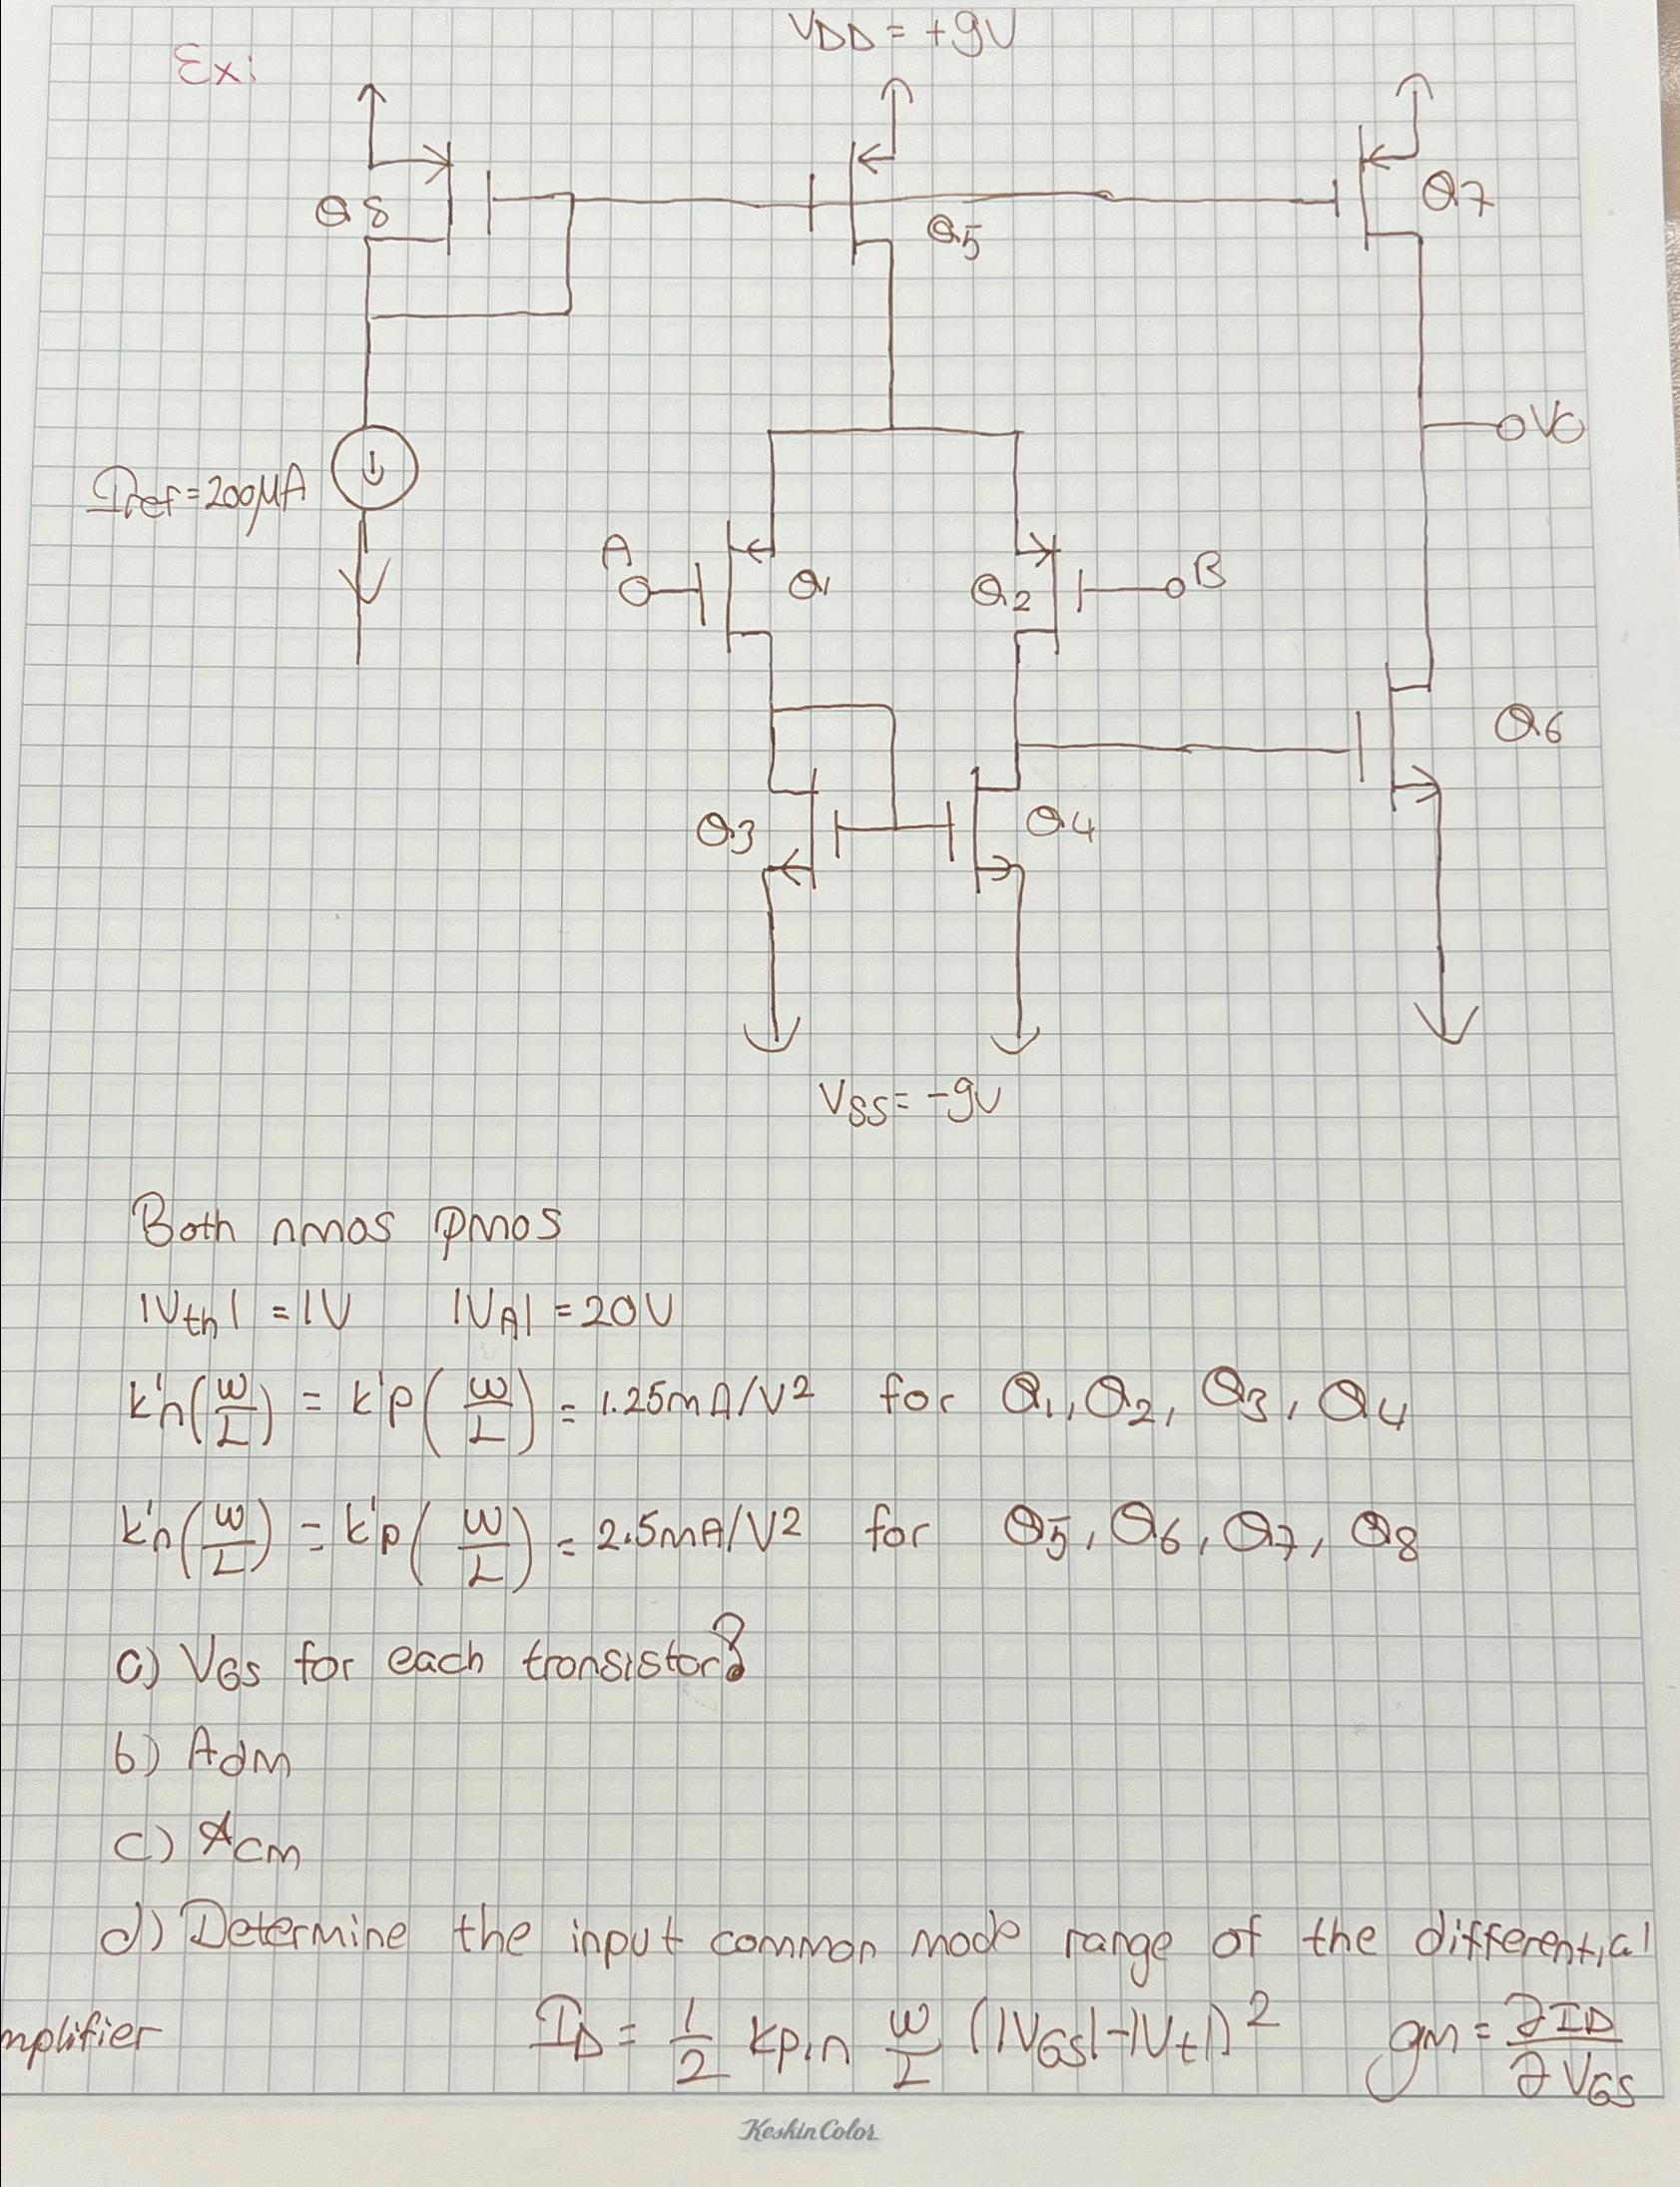 VDD = +9V
Ex:
Q8
Q5
Q7
VO
Iref=200μA
A
Q1
Q2
B
Q6
Q3
Q4
VSS = -9V
Both nmos pmos
|Vth| = 1V |VA| = 20V
k'n(W/L) = k'p(W/L) = 1.25mA/V² for Q1, Q2, Q3, Q4
k'n(W/L) = k'p(W/L) = 2.5mA/V² for Q5, Q6, Q7, Q8
a) VGS for each transistor?
b) Adm
c) Acm
d) Determine the input common mode range of the differential
mplifier ID = 1/2 kp,n W/L (|VGS|-|Vt|)² gm = ∂ID/∂VGS
KeskinColor